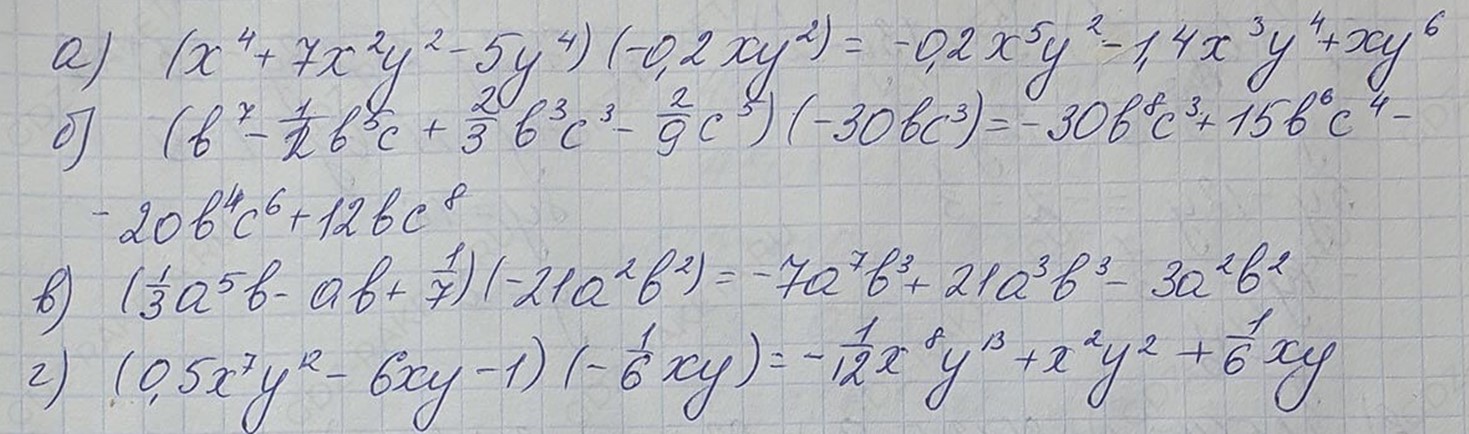 а) (x⁴ + 7x²y² - 5y⁴) (-0,2xy²) = -0,2x⁵y² - 1,4x³y⁴ + xy⁶
б) (b⁷ - 1/2 b⁵c + 2/3 b³c³ - 2/9 c⁵) (-30bc³) = -30b⁸c³ + 15b⁶c⁴ -
- 20b⁴c⁶ + 12bc⁸
в) (1/3 a⁵b - ab + 1/7) (-21a²b²) = -7a⁷b³ + 21a³b³ - 3a²b²
г) (0,5x⁷y¹² - 6xy - 1) (-1/6 xy) = -1/12 x⁸y¹³ + x²y² + 1/6 xy